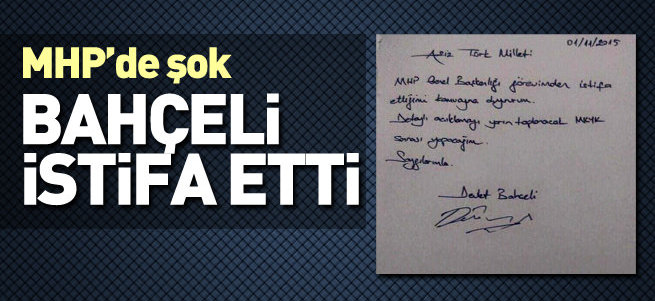 MHP'de şok
BAHÇELİ
İSTİFA ETTİ
01/11/2015
Aziz Türk Milleti
MHP Genel Başkanlığı görevimden istifa
ettiğimi kamuoyuna duyururum.
Detaylı açıklamayı yarın toplanacak MKYK
sonrası yapacağım.
Saygılarımla.
Devlet Bahçeli